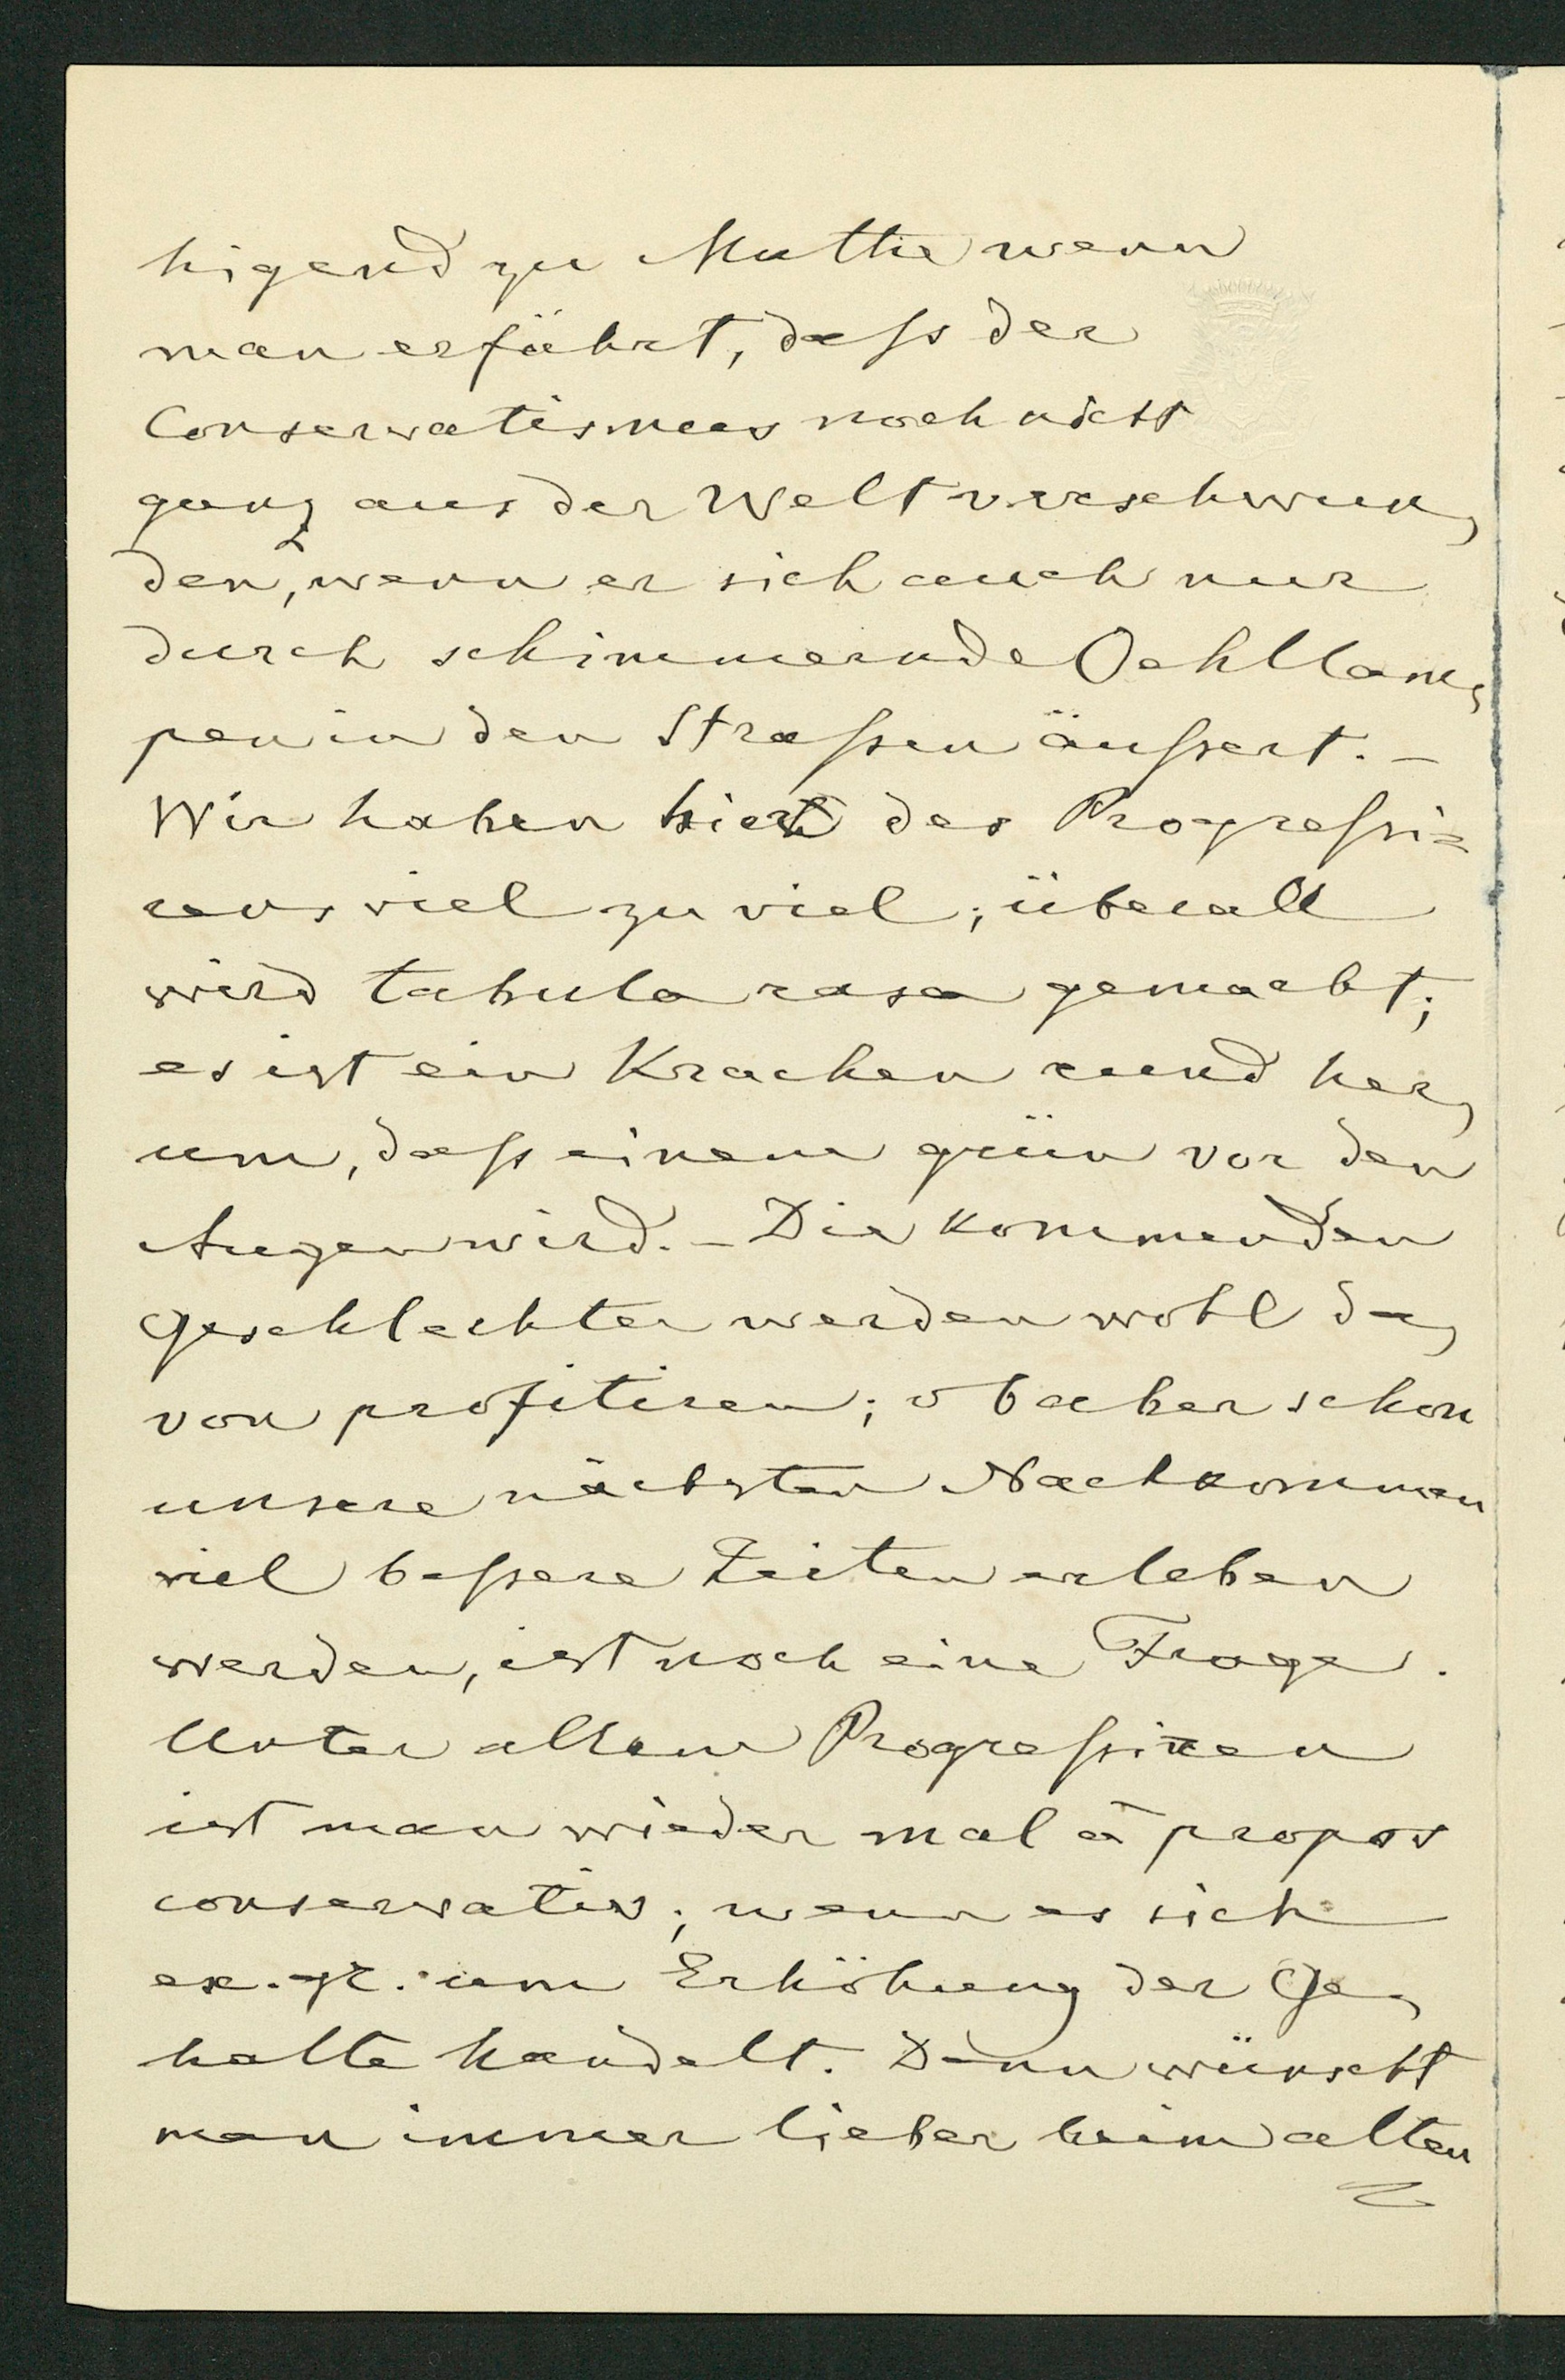 higend zu Muthe wenn
man erfährt, dass der
Conservatismus noch nicht
ganz aus der Welt verschwun-
den, wenn er sich auch nur
durch schimmernde Oehllam-
pen in den Strassen äussert. –
Wir haben hier des Progressi=
rens viel zu viel; überall
wird tabula rasa gemacht;
es ist ein Krachen rund her-
um, dass einem grün vor den
Augen wird. – Die kommenden
Geschlechter werden wohl da-
von profitiren; ob aber schon
unsere nächsten Nachkommen
viel bessere Zeiten erleben
werden, ist noch eine Frage.
Unter allem Progressiren
ist man wieder mal à propos
conservativ; wenn es sich
ex. gr. um Erhöhung der Ge-
halte handelt. Dann wünscht
man immer lieber beim alten